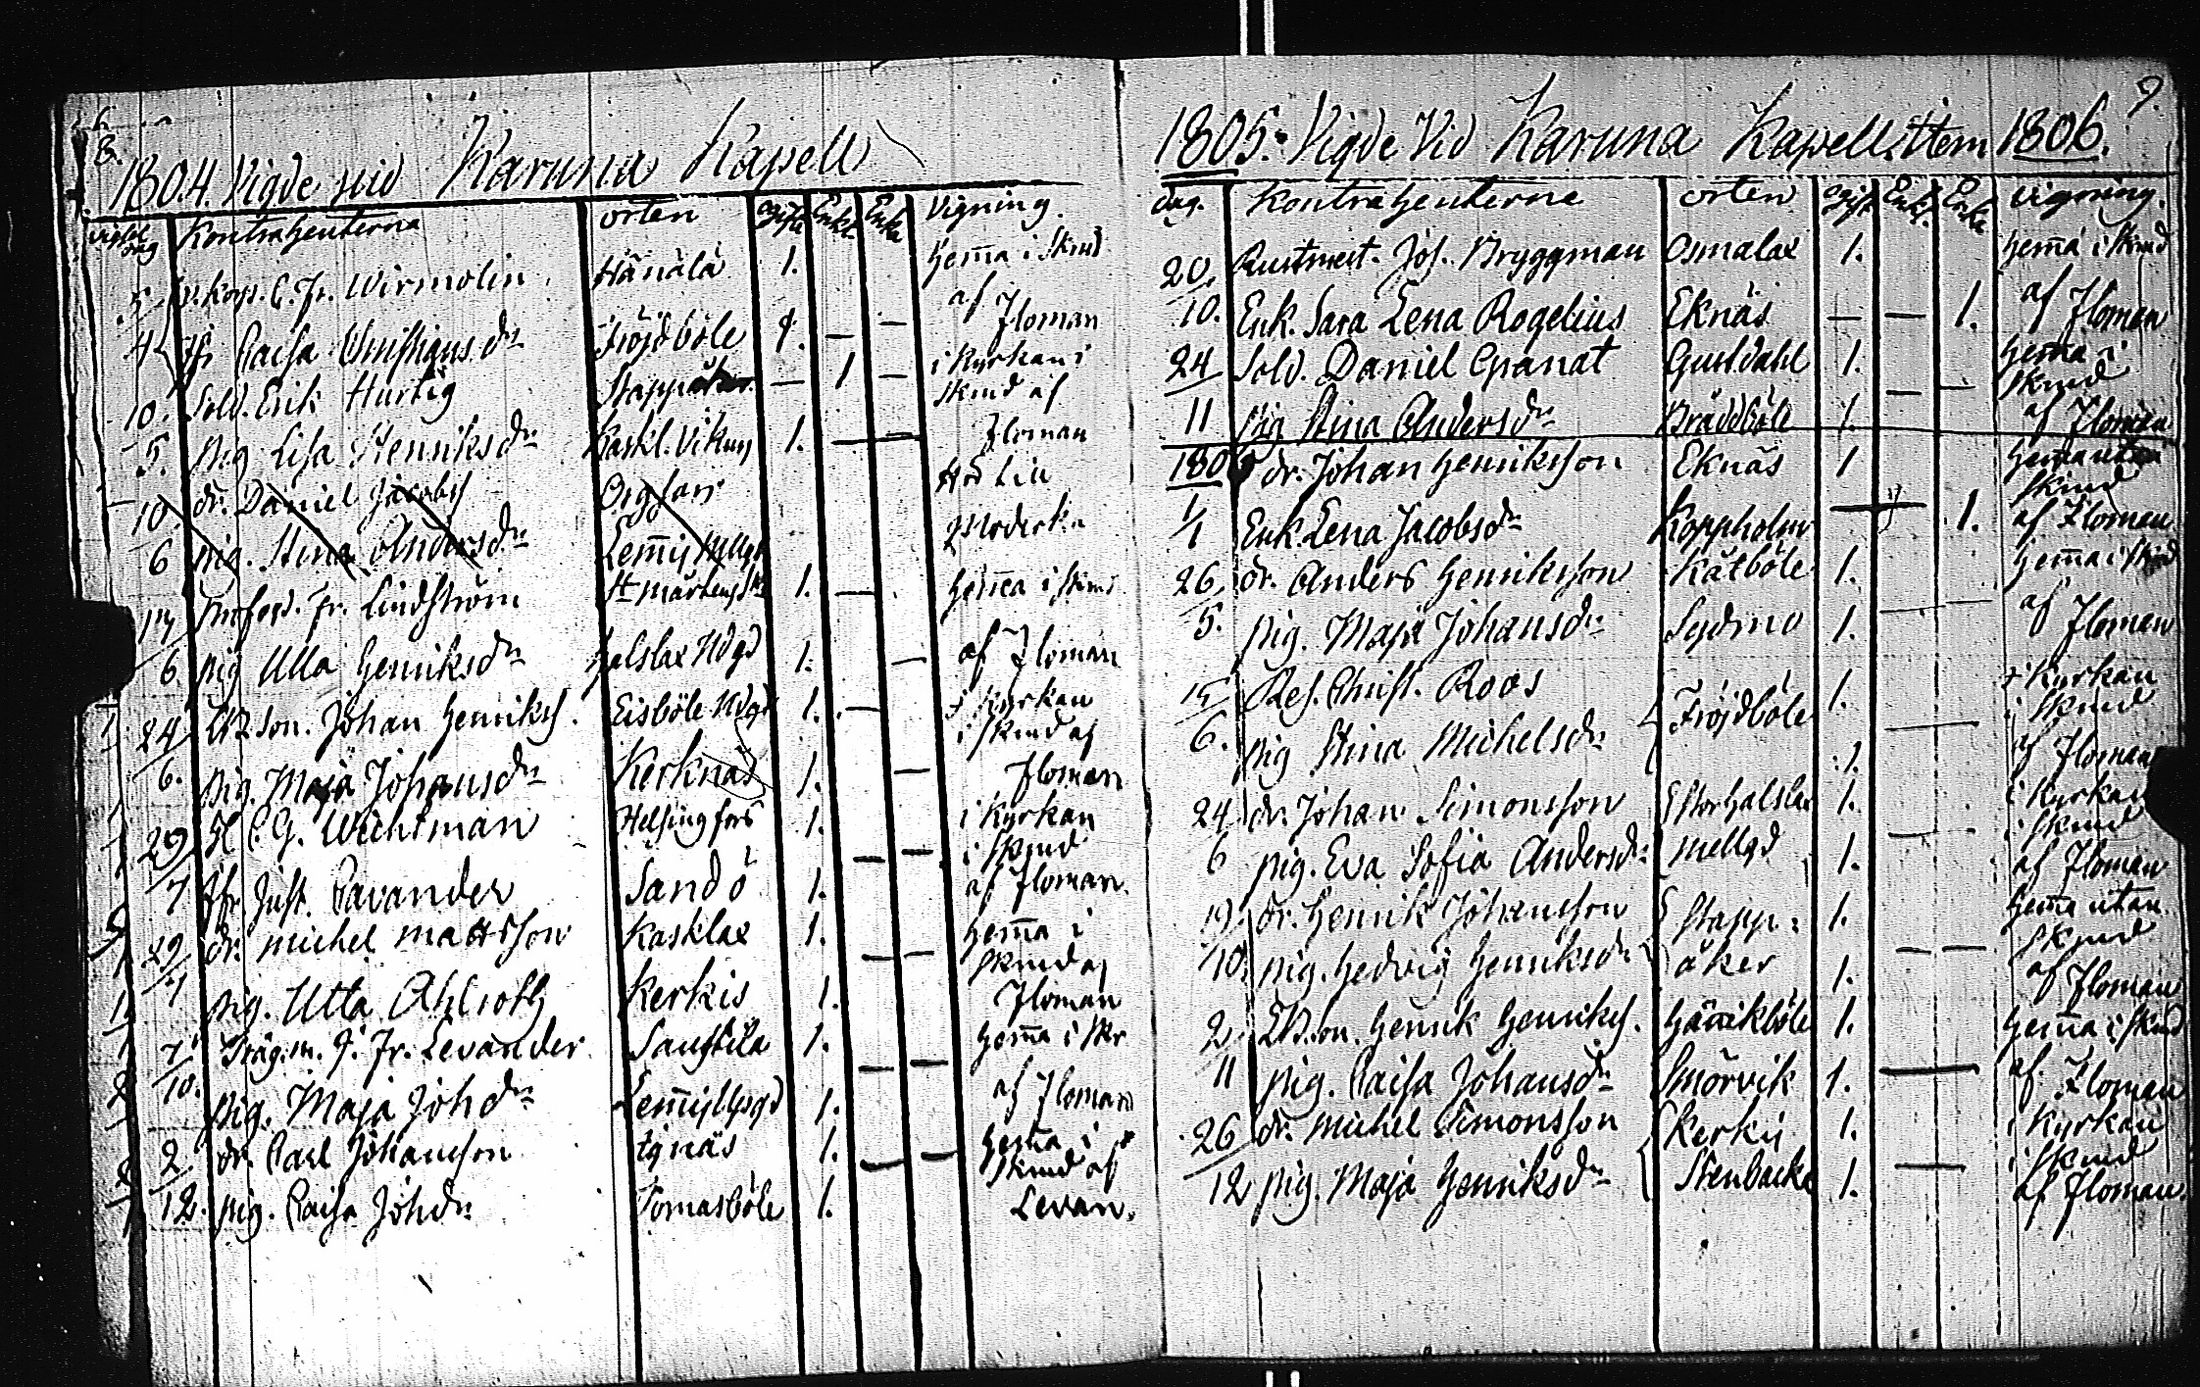 8.
1804. Vigde vid Karuna Kapell
Kontrahenterne orten Enkl. Enka Vigning.
5 v. Kap. C. Fr. Wirmolin Hänälä 1. hem̄a i Skrud
4 Caisa Christiansdr Fröjdböle 1. — — af Floman
10. Sold. Erik Hurtig Stappåker — 1 — i Kyrkan i Skrud af
5. pig Lisa Henriksdr Kaskl. 1. — — Floman
10. dr. Daniel Jacobss
6 pig. Stina Andersdr
Fr. Lindström St Mårtens 1. — hem̄a i Skrud
6 pig Ulla Henriksdr 1. — af Floman
24 son. Johan Henrikss. Eisböle 1. — i Kyrkan i Skrud af
6. pig. Maja Johansdr Kerknäs 1. — Floman
29 C. G. Wichtman Helsingfors 1. i Kyrkan i Skrud
7 Jfr. Just. Cavander Sandö 1. — — af Floman.
29 dr. Michel Mattsson Kasklax 1. hem̄a i
7 pig. Ulla Ahlroth Kerkis 1. — — Skrud af Floman
7 Fr. Levander 1. hem̄a i Skr
10. pig. Maja Johdr 1. — — af Floman
2 dr. Carl Johansson 1. hem̄a i
12. pig. Caisa Johdr Tomasböle 1. — — Skrud af Levan.
9.
1805. Vigde Vid Karuna Kapell. Item 1806.
dag. Kontrahenterne orten Gift Enkl. Enka vigning.
20. Rustmest. Joh. Bryggman Osmalax 1. hem̄a i Skrud
10. Enk. Sara Lena Rogelius Eknäs — — 1. af Floman
24 Sold. Daniel Granat Gustdahl 1. hem̄a i Skrud
11 pig Stina Andersdr Bräddböle 1. — — af Floman
180 dr. Johan Henriksson Eknäs 1 hem̄a utan Skrud
1/1 Enk. Lena Jacobsdr Koppholm — 1. af Floman
26 dr. Anders Henriksson Kätböle 1. hem̄a i Skrud
5. pig. Maja Johansdr Sydmo 1. — — af Floman
15 Christ. Roos Fröjdböle 1. i Kyrkan i Skrud
6. pig Stina Michelsdr 1. — af Floman
24 dr. Johan Simonsson Storhalslax 1. i Kyrkan i Skrud
6 pig. Eva Sofia Andersdr Mellgd 1. — af Floman
19. dr. Henrik Johansson Stapp: 1. hem̄a utan Skrud
10. pig. Hedvig Henriksdr åker 1. — — af Floman
2 son. Henrik Henrikss. 1. hem̄a i Skrud
11 pig. Caisa Johansdr Smörvik 1. — af Floman
26 dr. Michel Simonsson Kerkis 1. i Kyrkan i Skrud
12 pig. Maja Henriksdr Stenbacka 1. — af Floman.